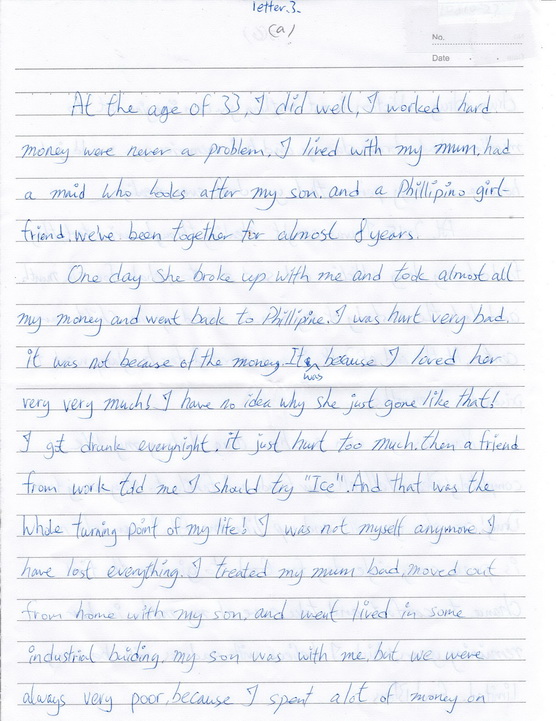 letter.3.
(a)
No.
Date . .
At the age of 33, I did well, I worked hard.
money were never a problem. I lived with my mum, had
a maid who looks after my son, and a Phillipino girl-
friend, we've been together for almost 8 years.
One day she broke up with me and took almost all
my money and went back to Phillipine. I was hurt very bad.
it was not because of the money. It was because I loved her
very very much! I have no idea why she just gone like that!
I got drunk everynight. it just hurt too much. then a friend
from work told me I should try "Ice". And that was the
whole turning point of my life! I was not myself anymore. I
have lost everything. I treated my mum bad, moved out
from home with my son, and went lived in some
industrial buiding, my son was with me, but we were
always very poor, because I spent alot of money on